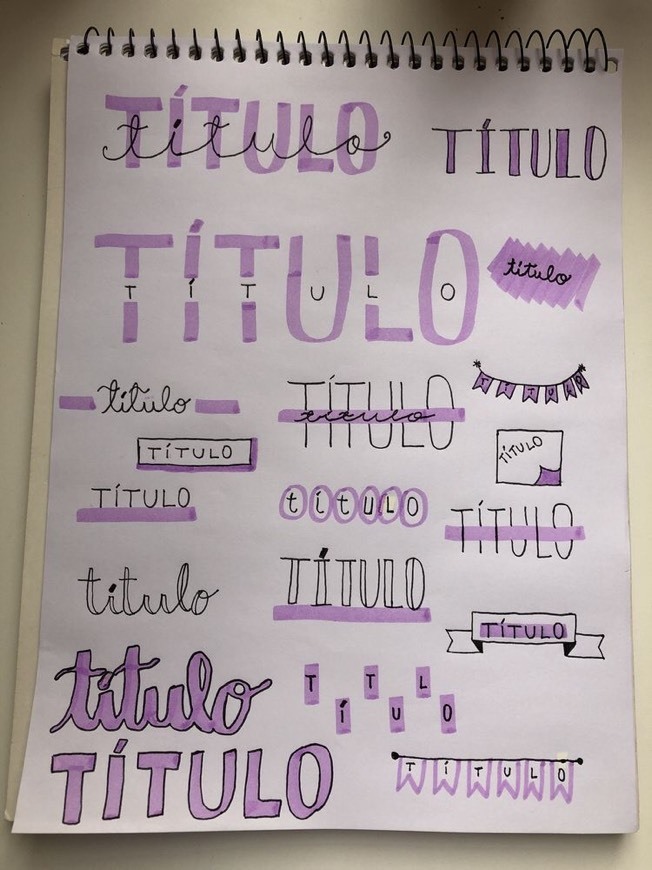 TÍTULO
título
TÍTULO
TÍTULO
TÍTULO
título
título
TÍTULO
título
TÍTULO
TÍTULO
TÍTULO
TÍTULO
título
TÍTULO
título
TÍTULO
TÍTULO
TÍTULO
título
TÍTULO
TÍTULO
TÍTULO